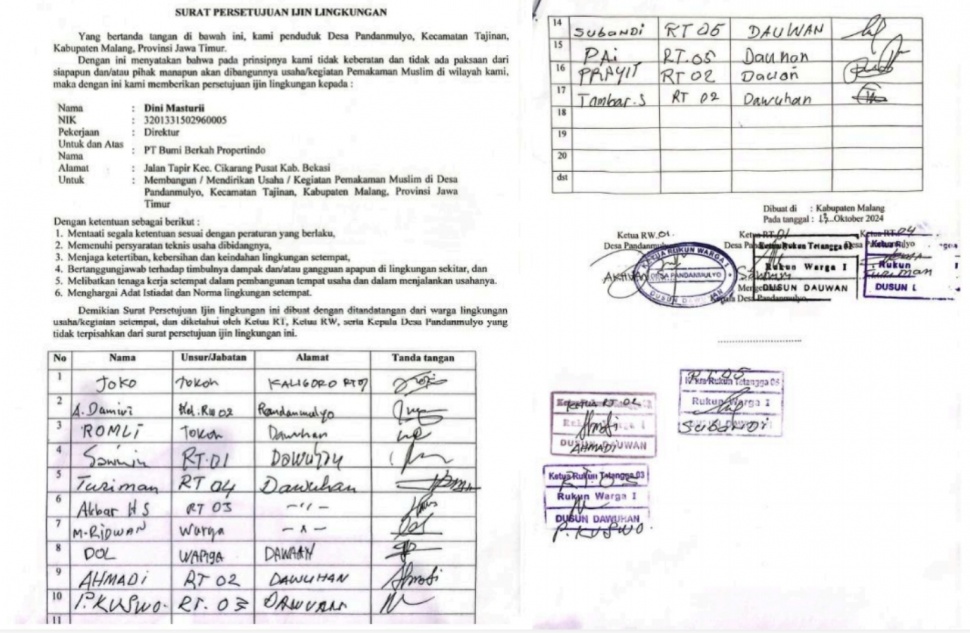 SURAT PERSETUJUAN IJIN LINGKUNGAN
Yang bertanda tangan di bawah ini, kami penduduk Desa Pandanmulyo, Kecamatan Tajinan,
Kabupaten Malang, Provinsi Jawa Timur.
Dengan ini menyatakan bahwa pada prinsipnya kami tidak keberatan dan tidak ada paksaan dari
siapapun dan/atau pihak manapun akan dibangunnya usaha/kegiatan Pemakaman Muslim di wilayah kami,
maka dengan ini kami memberikan persetujuan ijin lingkungan kepada :
Nama : Dini Masturii
NIK : 3201331502960005
Pekerjaan : Direktur
Untuk dan Atas Nama : PT Bumi Berkah Propertindo
Alamat : Jalan Tapir Kec. Cikarang Pusat Kab. Bekasi
Untuk : Membangun / Mendirikan Usaha / Kegiatan Pemakaman Muslim di Desa
Pandanmulyo, Kecamatan Tajinan, Kabupaten Malang, Provinsi Jawa
Timur
Dengan ketentuan sebagai berikut :
1. Mentaati segala ketentuan sesuai dengan peraturan yang berlaku,
2. Memenuhi persyaratan teknis usaha dibidangnya,
3. Menjaga ketertiban, kebersihan dan keindahan lingkungan setempat,
4. Bertanggungjawab terhadap timbulnya dampak dan/atau gangguan apapun di lingkungan sekitar, dan
5. Melibatkan tenaga kerja setempat dalam pembangunan tempat usaha dan dalam menjalankan usahanya.
6. Menghargai Adat Istiadat dan Norma lingkungan setempat.
Demikian Surat Persetujuan Ijin Lingkungan ini dibuat dengan ditandatangan dari warga lingkungan
usaha/kegiatan setempat, dan diketahui oleh Ketua RT, Ketua RW, serta Kepala Desa Pandanmulyo yang
tidak terpisahkan dari surat persetujuan ijin lingkungan ini.
No Nama Unsur/Jabatan Alamat Tanda tangan
1 JOKO TOKOH KALIGORO RT 07
2 A. Damiri RW 02 Pandanmulyo
3 ROMLI Tokoh Dawuhan
4 RT.01
5 Turiman RT 04 Dawuhan
6 Akbar H S RT 03 -"-
7 M. RIDWAN Warga
8 DOL WARGA DAWAAN
9 AHMADI RT 02 DAWUHAN
10 P.KUSWO. RT. 03 DAWUHAN
11
14 SUBANDI RT 05 DAUWAN
15 PAi RT.05 Dauhan
16 PRAYIT RT 02 Dawan
17 Tambar.S RT 02 Dawuhan
18
19
20
dst
Dibuat di : Kabupaten Malang
Pada tanggal : Oktober 2024
Ketua RW.01 Ketua RT.01 Ketua RT.04
Desa Pandanmulyo
KETUA RUKUN WARGA I
DESA PANDANMULYO
DUSUN DAWUHAN
Ketua Rukun Tetangga 01
Rukun Warga I
DUSUN DAUWAN
Rukun
Turiman
DUSUN
Kepala Desa Pandanmulyo
Ketua RT 02
AHMADI
DUSUN DAUWAN
RT 05
Ketua Rukun Tetangga 05
Rukun Warga I
SUBANDI
Ketua Rukun Tetangga 03
Rukun Warga I
DUSUN DAWUHAN
P.KUSWO.